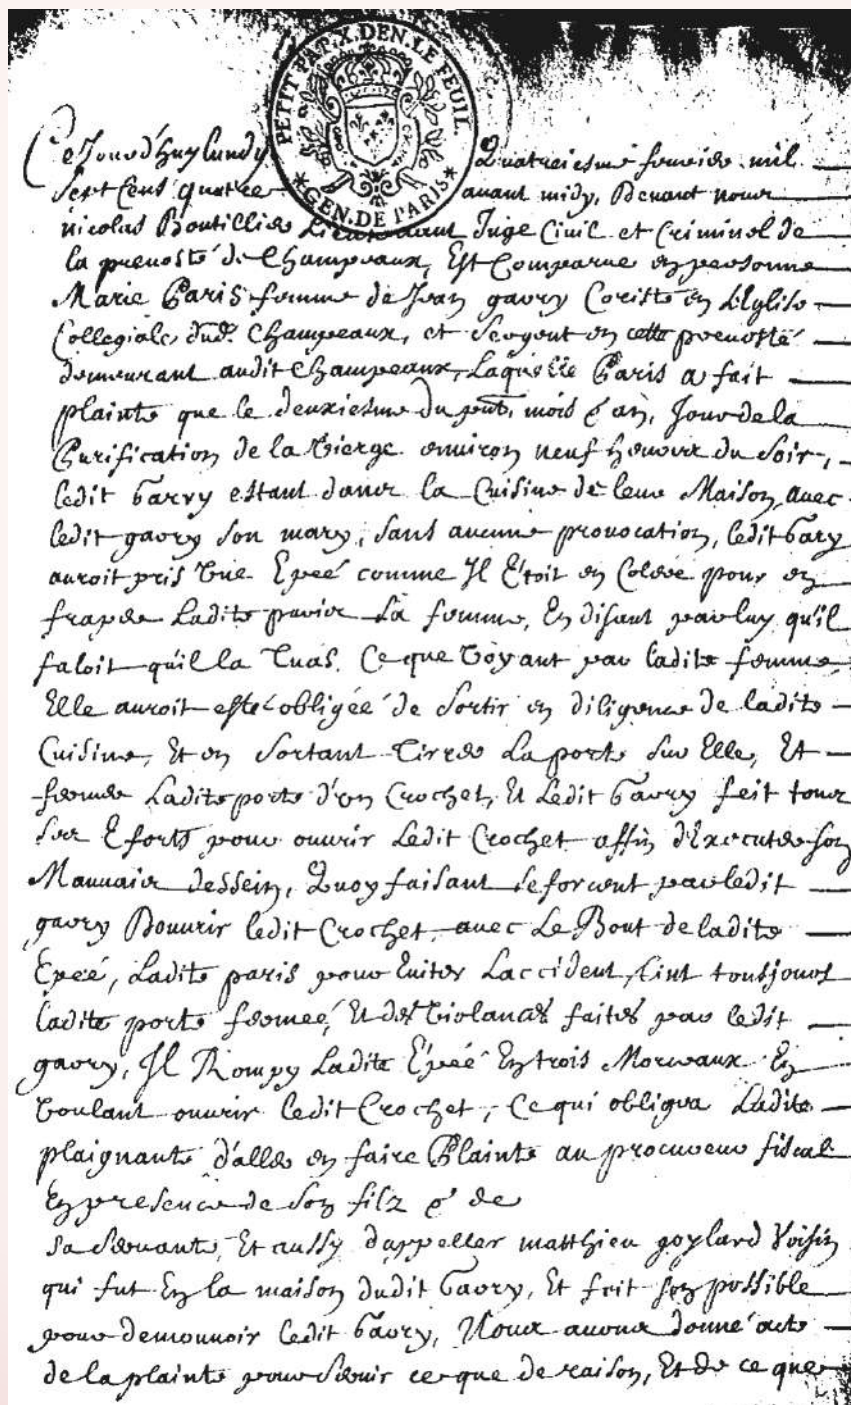 PETIT PAP. X. DEN. LE FEUIL.
GEN. DE PARIS
Ce Jourd'huy lundy Quatreiesme feuvier mil
Sept Cens quatre avant midy, Devant nous
nicolas Boutillier Lieutenant Juge Civil et Criminel de
la prevosté de Champeaux, Est Comparue en personne
Marie Paris femme de Jean gavry Coriste en L'Eglise
Collegiale dud. Champeaux, et Sergent en cette prevosté
demeurant audit Champeaux, Laquelle Paris a fait
plainte que le deuxiesme du pnt. mois & an, Jour de la
Purification de la Vierge environ neuf heures du Soir,
ledit Gavry estant dans la Cuisine de leur Maison, avec
ledit gavry son mary, sans aucune provocation, ledit Gavry
auroit pris Une Epeé comme Il Etoit en Colere pour en
fraper Ladite parier Sa femme, En disant par luy qu'il
faloit qu'il la Tuas. Ce que Voyant par ladite femme
Elle auroit esté obligée de Sortir en diligence de ladite
Cuisine, Et en Sortant Tirrer La porte Sur Elle, Et
fermer Ladite porte d'un Crochet, Et Ledit Gavry feit tous
Ses Eforts pour ouvrir Ledit Crochet affin d'Executer son
Mauvais dessein, Quoy faisant se forcent par ledit
gavry D'ouvrir ledit Crochet avec Le Bout de ladite
Epeé, Ladite paris pour Eviter L'accident, tint tousjours
ladite porte fermeé, Et des Violances faites par ledit
gavry, Il Rompy Ladite Epeé En trois Morceaux En
Voulant ouvrir ledit Crochet, Ce qui obligea Ladite
plaignante d'aller en faire Plainte au procureur fiscal
En presence de Son filz & de
sa Servante, Et aussy d'appeller matthieu goylard Voisin
qui fut En la maison dudit Gavry, Et feit son possible
pour demouvoir ledit Gavry, Nous avons donné acte
de la plainte pour Servir ce que de raison, Et de ce que